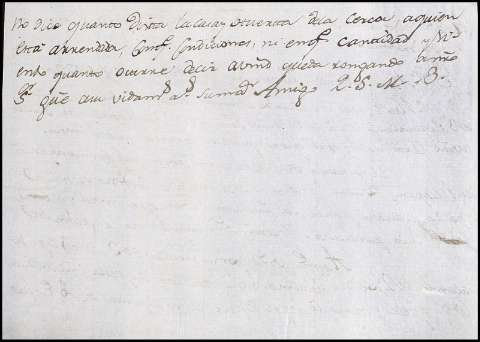 No dice quanto dista la casa o huerta dela Cerca, aquien
està arrendada, Conq.ᵉ Condiciones, ni enq.ᵉ cantidad, y
esto quanto ocurre decir a Vmd queda rogando a não
S.ʳ que su vida m.ˢ a.ˢ su mas Amigo Q. S. M. B.